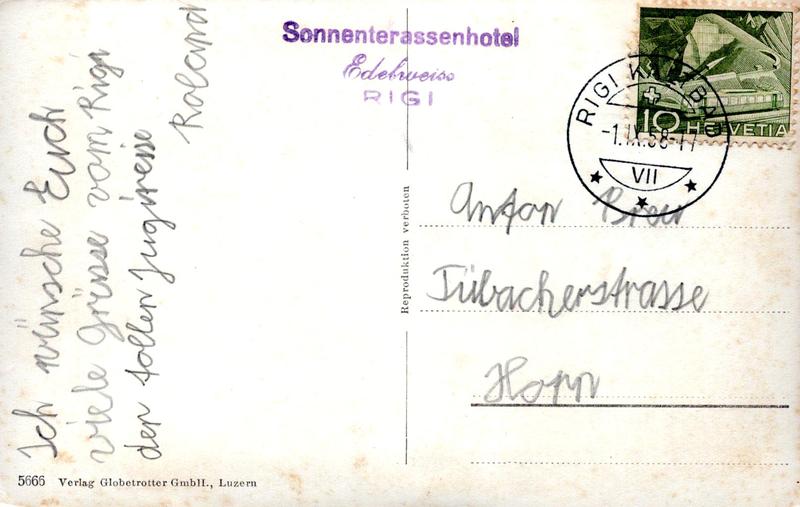 Ich wünsche Euch
viele Grüsse vom Rigi
der tollen Jugireise
Roland
Sonnenterassenhotel
Edelweiss
RIGI
RIGI KALTBAD
-1.IX.58-17
VII
10 HELVETIA
Anton Breu
Tübacherstrasse
Horn
Reproduktion verboten
5666 Verlag Globetrotter GmbH., Luzern